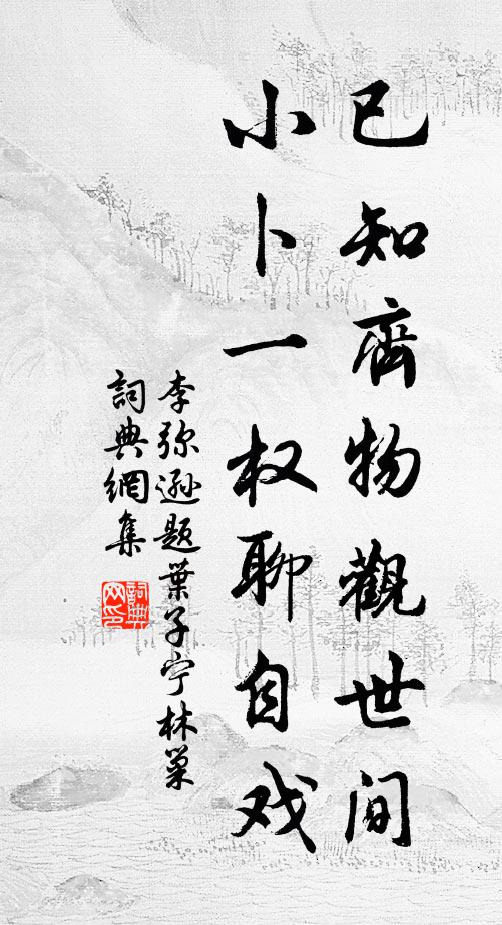 已知齊物觀世间
小卜一权聊自戏
李弥逊题葉子宁林巢
詞典網集
詞典网印